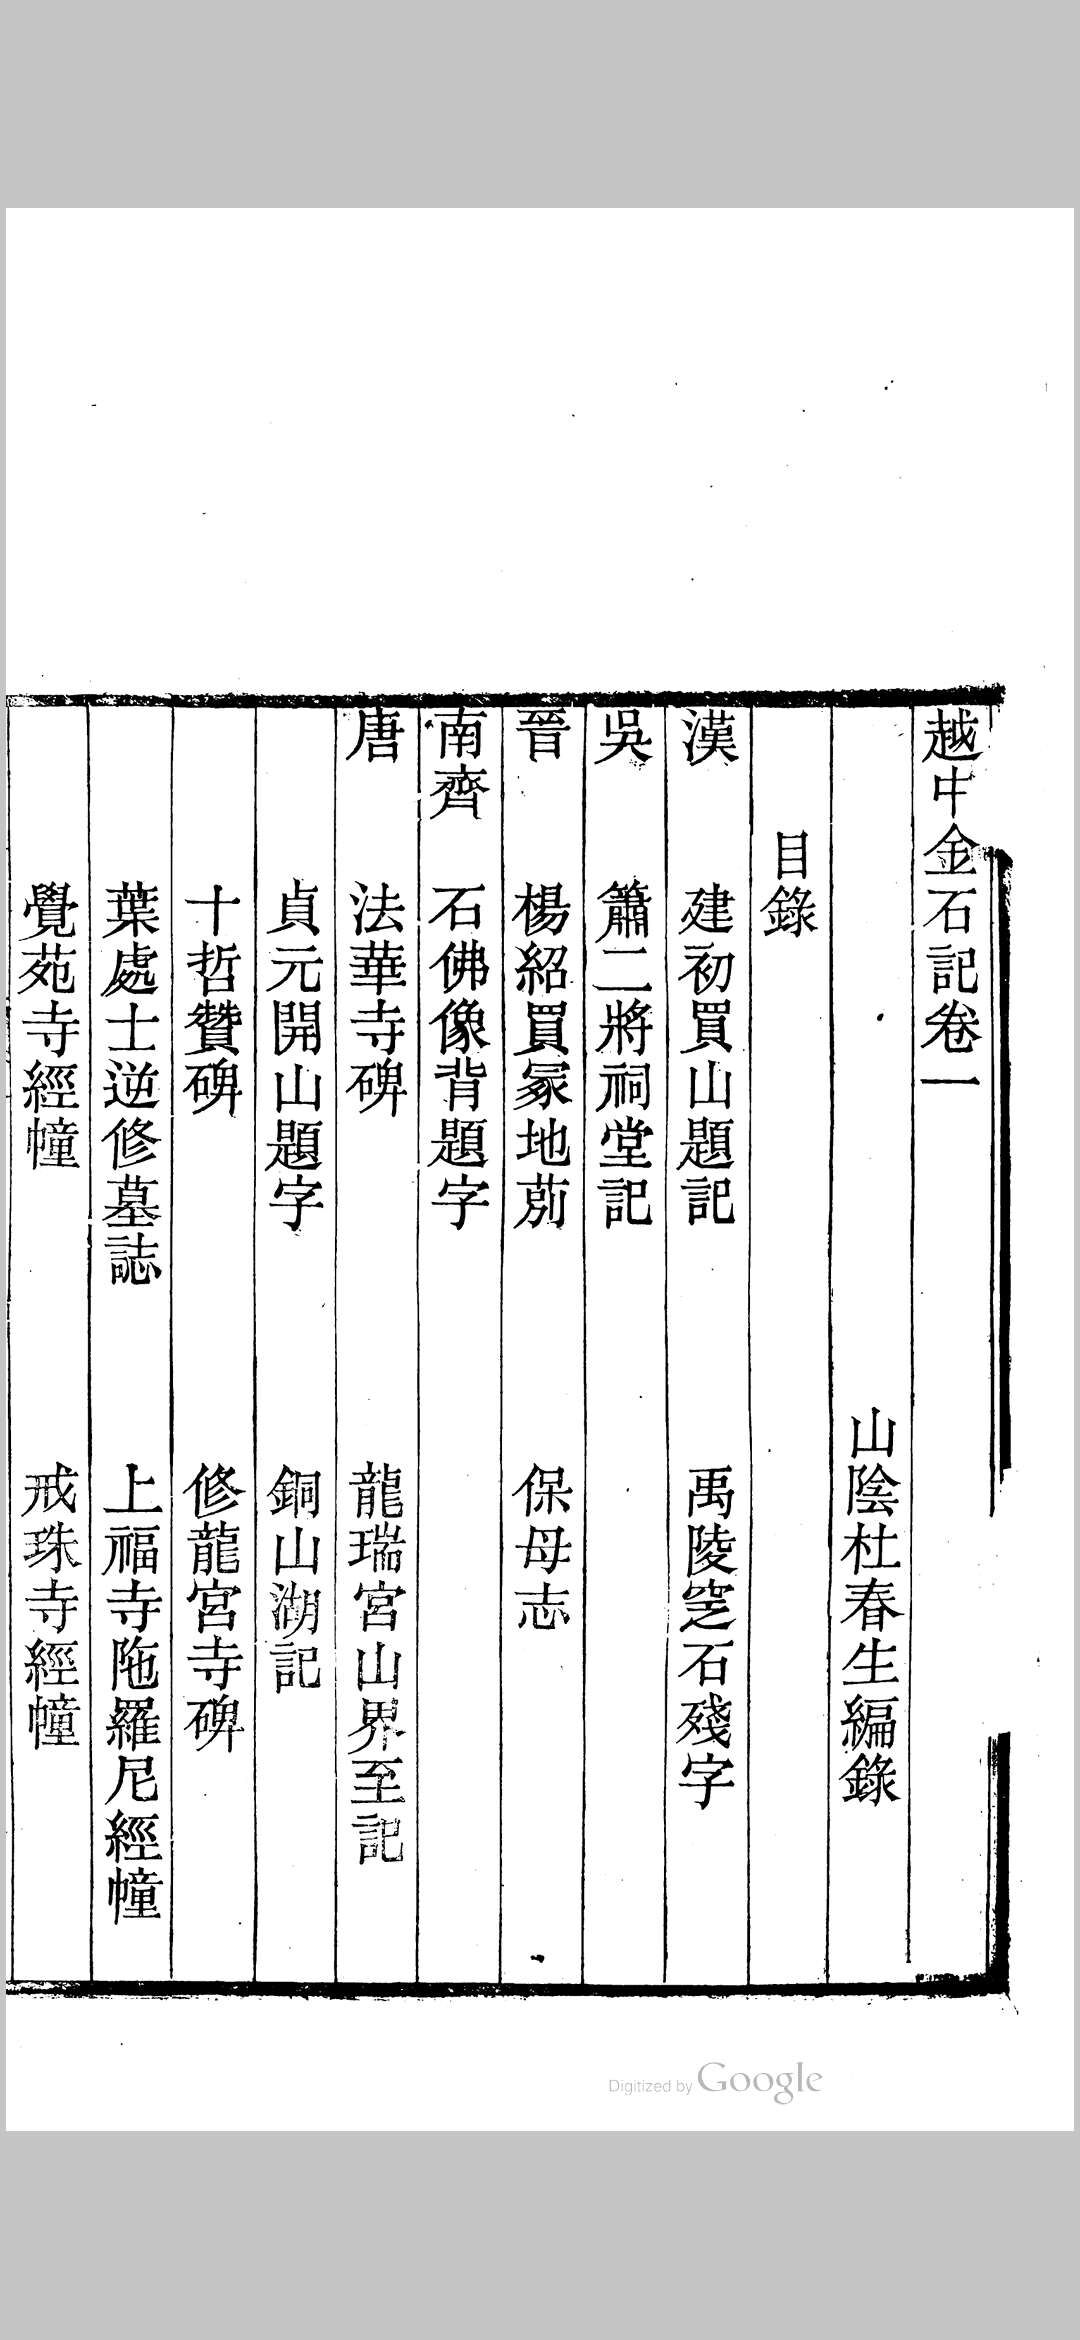 越中金石記卷一
山陰杜春生編錄
目錄
漢　建初買山題記　禹陵窆石殘字
吳　蕭二將祠堂記
晉　楊紹買冢地莂　保母志
南齊　石佛像背題字
唐　法華寺碑　龍瑞宮山界至記
貞元開山題字　銅山湖記
十哲贊碑　修龍宮寺碑
葉處士逆修墓誌　上福寺陁羅尼經幢
覺苑寺經幢　戒珠寺經幢
Digitized by Google